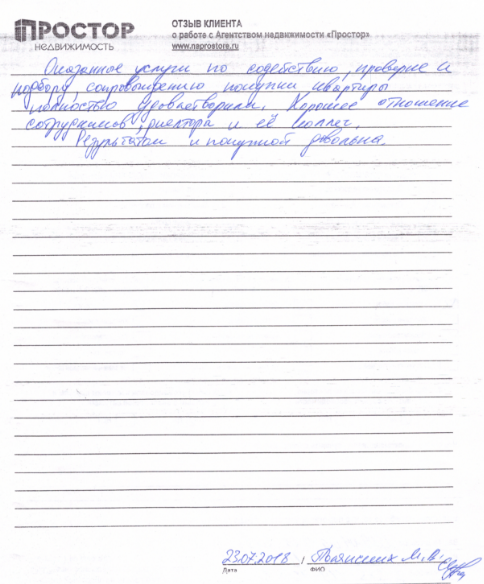 ПРОСТОР
НЕДВИЖИМОСТЬ
ОТЗЫВ КЛИЕНТА
о работе с Агентством недвижимости «Простор»
www.naprostore.ru
Оказанные услуги по содействию, проверке и
подбору, сопровождению покупки квартиры
полностью удовлетворили. Хорошее отношение
сотрудников, риелтора и её коллег.
Результатом и покупкой довольна.
23.07.2018 /
Дата ФИО